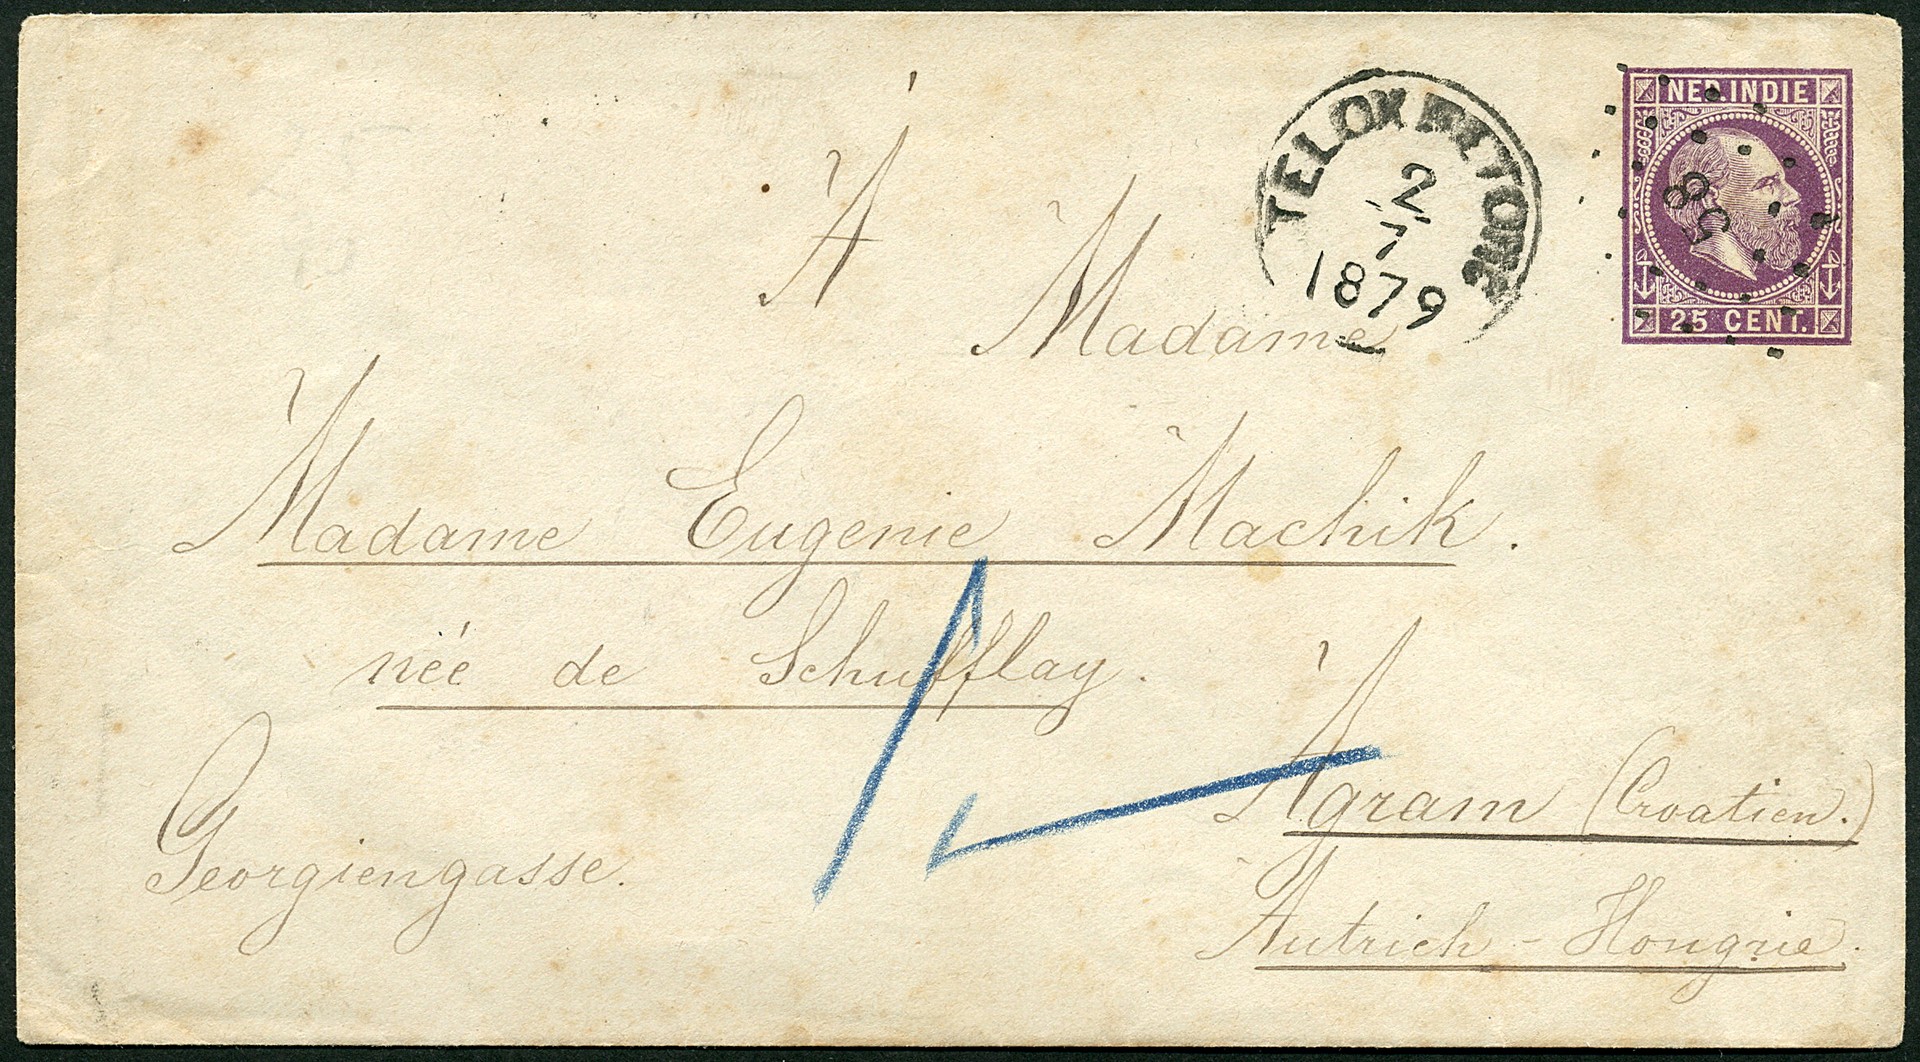 NED.INDIE
85
25 CENT.
TELOK BETONG
2
7
1879
À
Madame
Madame Eugenie Machik.
née de Schufflay.
Georgiengasse.
Agram (Croatien.)
Autrich-Hongrie.